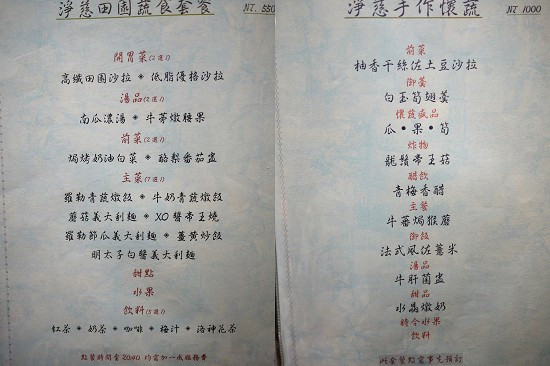 淨慈田園蔬食套餐 NT. 550
開胃菜(2選1)
高纖田園沙拉 * 低脂優格沙拉
湯品(2選1)
南瓜濃湯 * 牛蒡燉腰果
前菜(2選1)
焗烤奶油白菜 * 酪梨番茄盅
主菜(7選1)
羅勒青蔬燉飯 * 牛奶青蔬燉飯
蘑菇義大利麵 * XO醬帝王燒
羅勒節瓜義大利麵 * 薑黃炒飯
明太子白醬義大利麵
甜點
水果
飲料(5選1)
紅茶 * 奶茶 * 咖啡 * 梅汁 * 洛神花茶
點餐時間會20:40 均需加一成服務費
淨慈手作懷蔬 NT 1000
前菜
柚香干絲佐土豆沙拉
御羹
白玉筍翅羹
懷蔬盛品
瓜•果•筍
炸物
龍鬚帝王菇
醋飲
青梅香醋
主餐
牛蒡焗猴蘑
御飯
法式風佐薏米
湯品
牛肝菌盅
甜品
水晶燉奶
時令水果
飲料
此套餐點需事先預訂